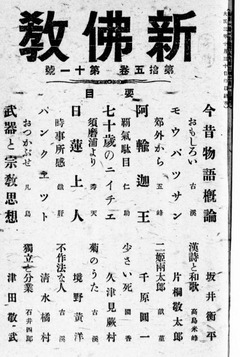 新佛教
第拾五卷 第十一號
要目
今昔物語概論 坂井衡平
おもしろい 古溪 漢詩と和歌 高島米峰
モウパツサン 片桐敬太郎
郊外から 五峰 二姬兩太郎 戯菫
阿輸迦王 千原圓一
覇氣耽目 仁助 少さい死 國香
七十歲のニイチエ 久津見蕨村
須磨浦より 秀天 菊のうた 古溪
日蓮上人 境野黃洋
時事所感 鐵肝 不作法な人 古溪
バンクエツト 淸水橘村
おつかぶせ 凡鳥 獨立と分業 石井四郎
武器と宗敎思想 津田敬武